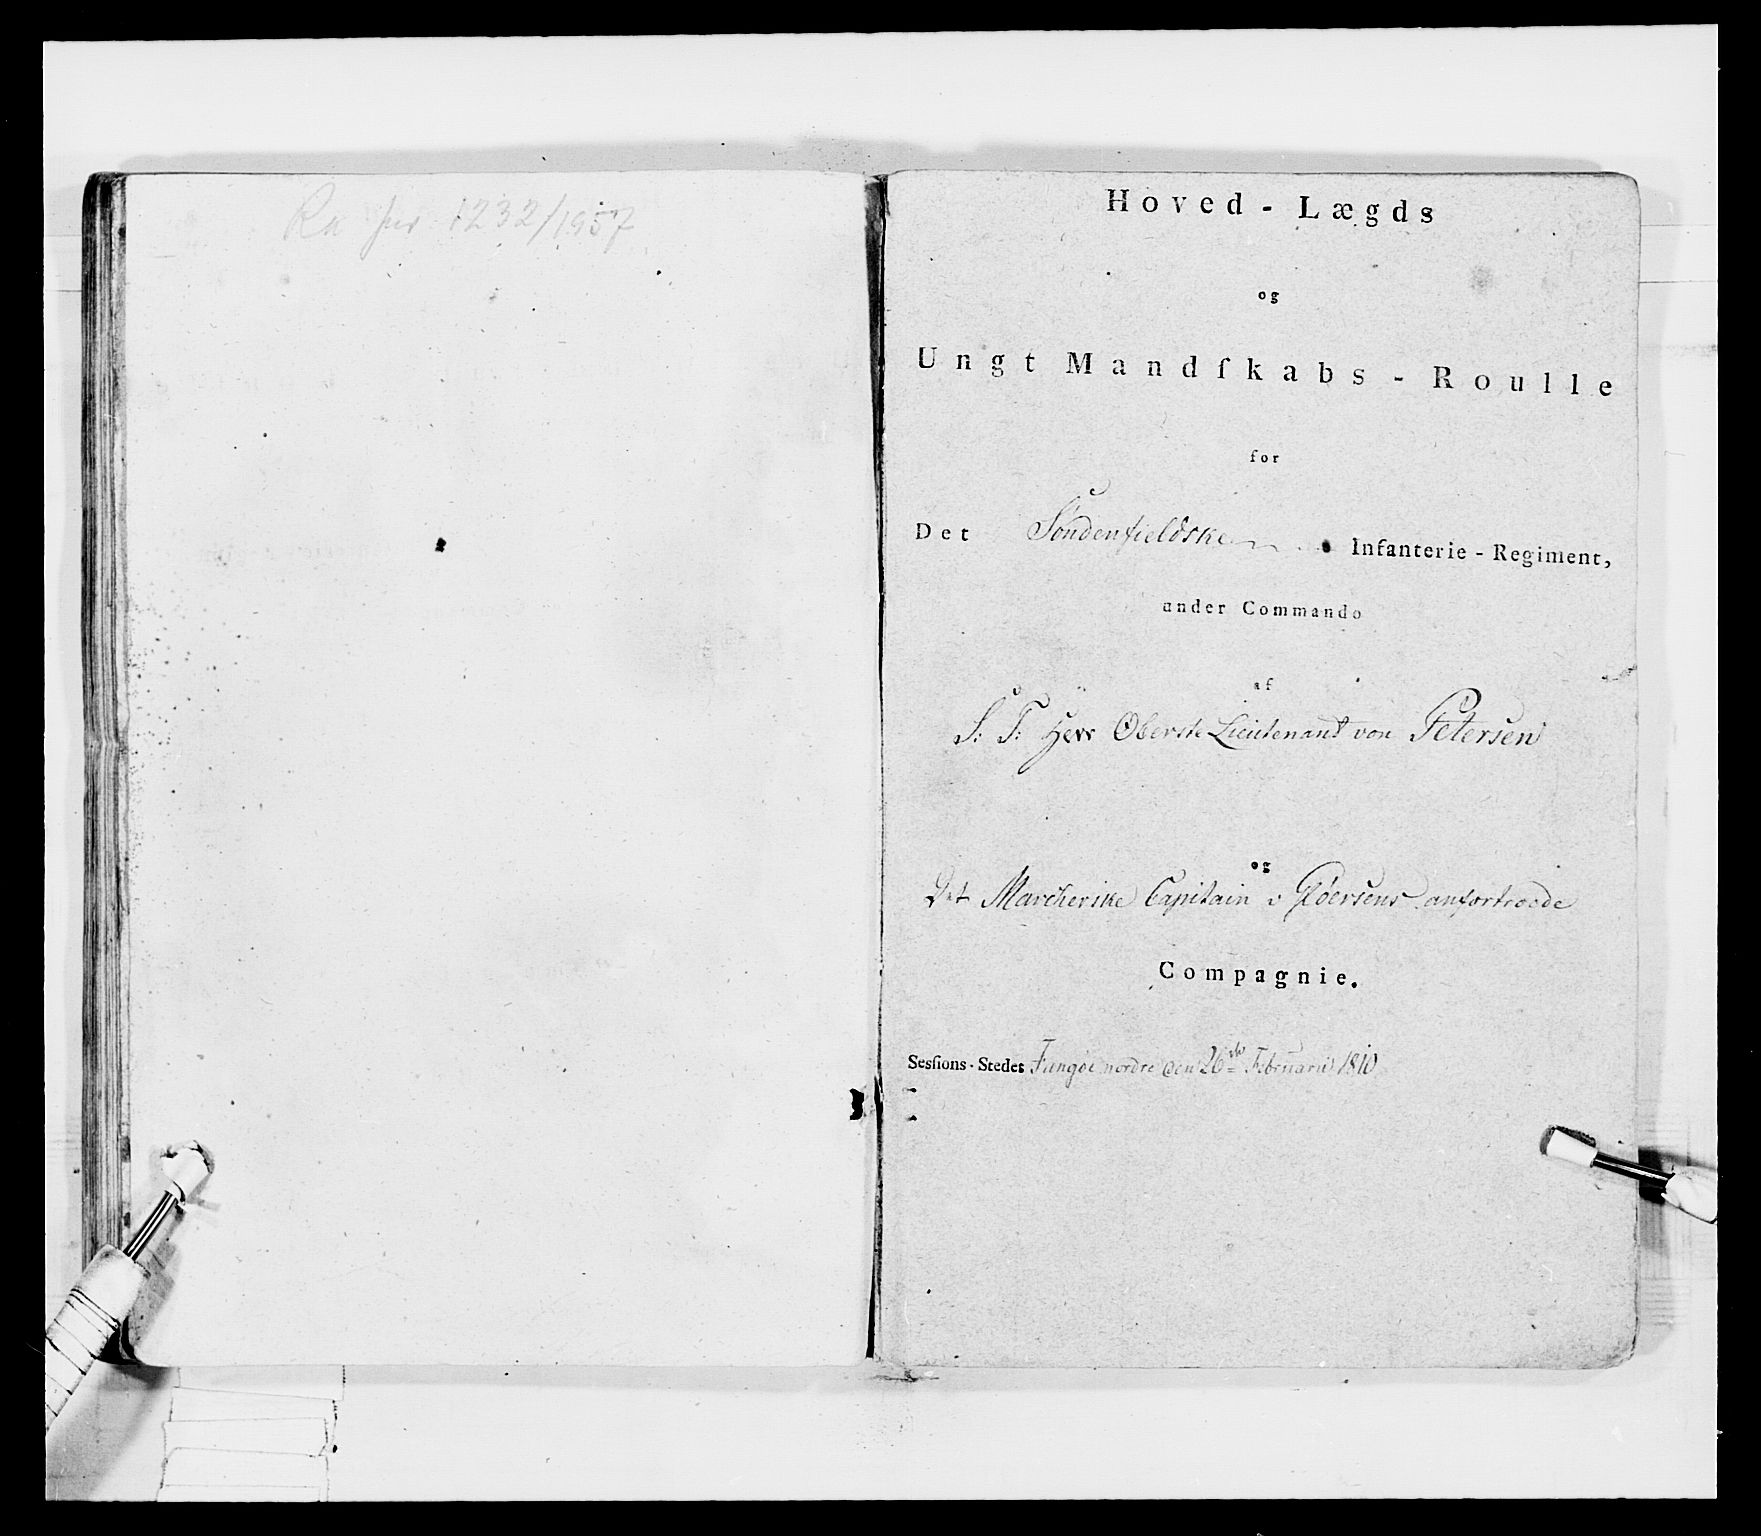 Ra jur 1232/1957
Hoved - Lægds
og
Ungt Mandſkabs - Roulle
for
Det Söndenfieldske Infanterie - Regiment,
under Commando
af
S: T: Herr Oberste Lieutenant von Petersen
og
Det Marcherske Capitain v Gløersens anfortroede
Compagnie.
Sesſions-Stedet nordre den 26de Februarii 1810